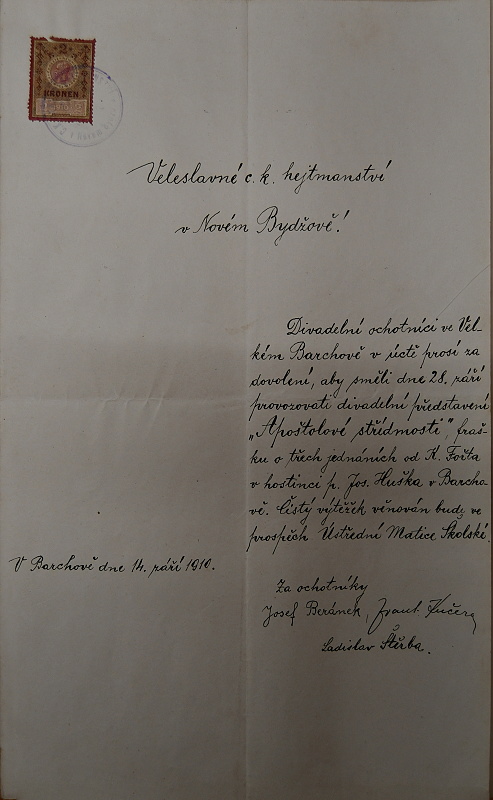 2
KRONEN
Veleslavné c. k. hejtmanství
v Novém Bydžově!
Divadelní ochotníci ve Vel-
kém Barchově v úctě prosí za
dovolení, aby směli dne 28. září
provozovati divadelní představení
„Apoštolové střídmosti", fraš-
ku o třech jednáních od K. Fořta
v hostinci p. Jos. Huška v Barcho-
vě. Čistý výtěžek věnován bude ve
prospěch Ústřední Matice Školské.
V Barchově dne 14. září 1910.
Za ochotníky
Josef Beránek, Frant. Kučera
Ladislav Štěrba.